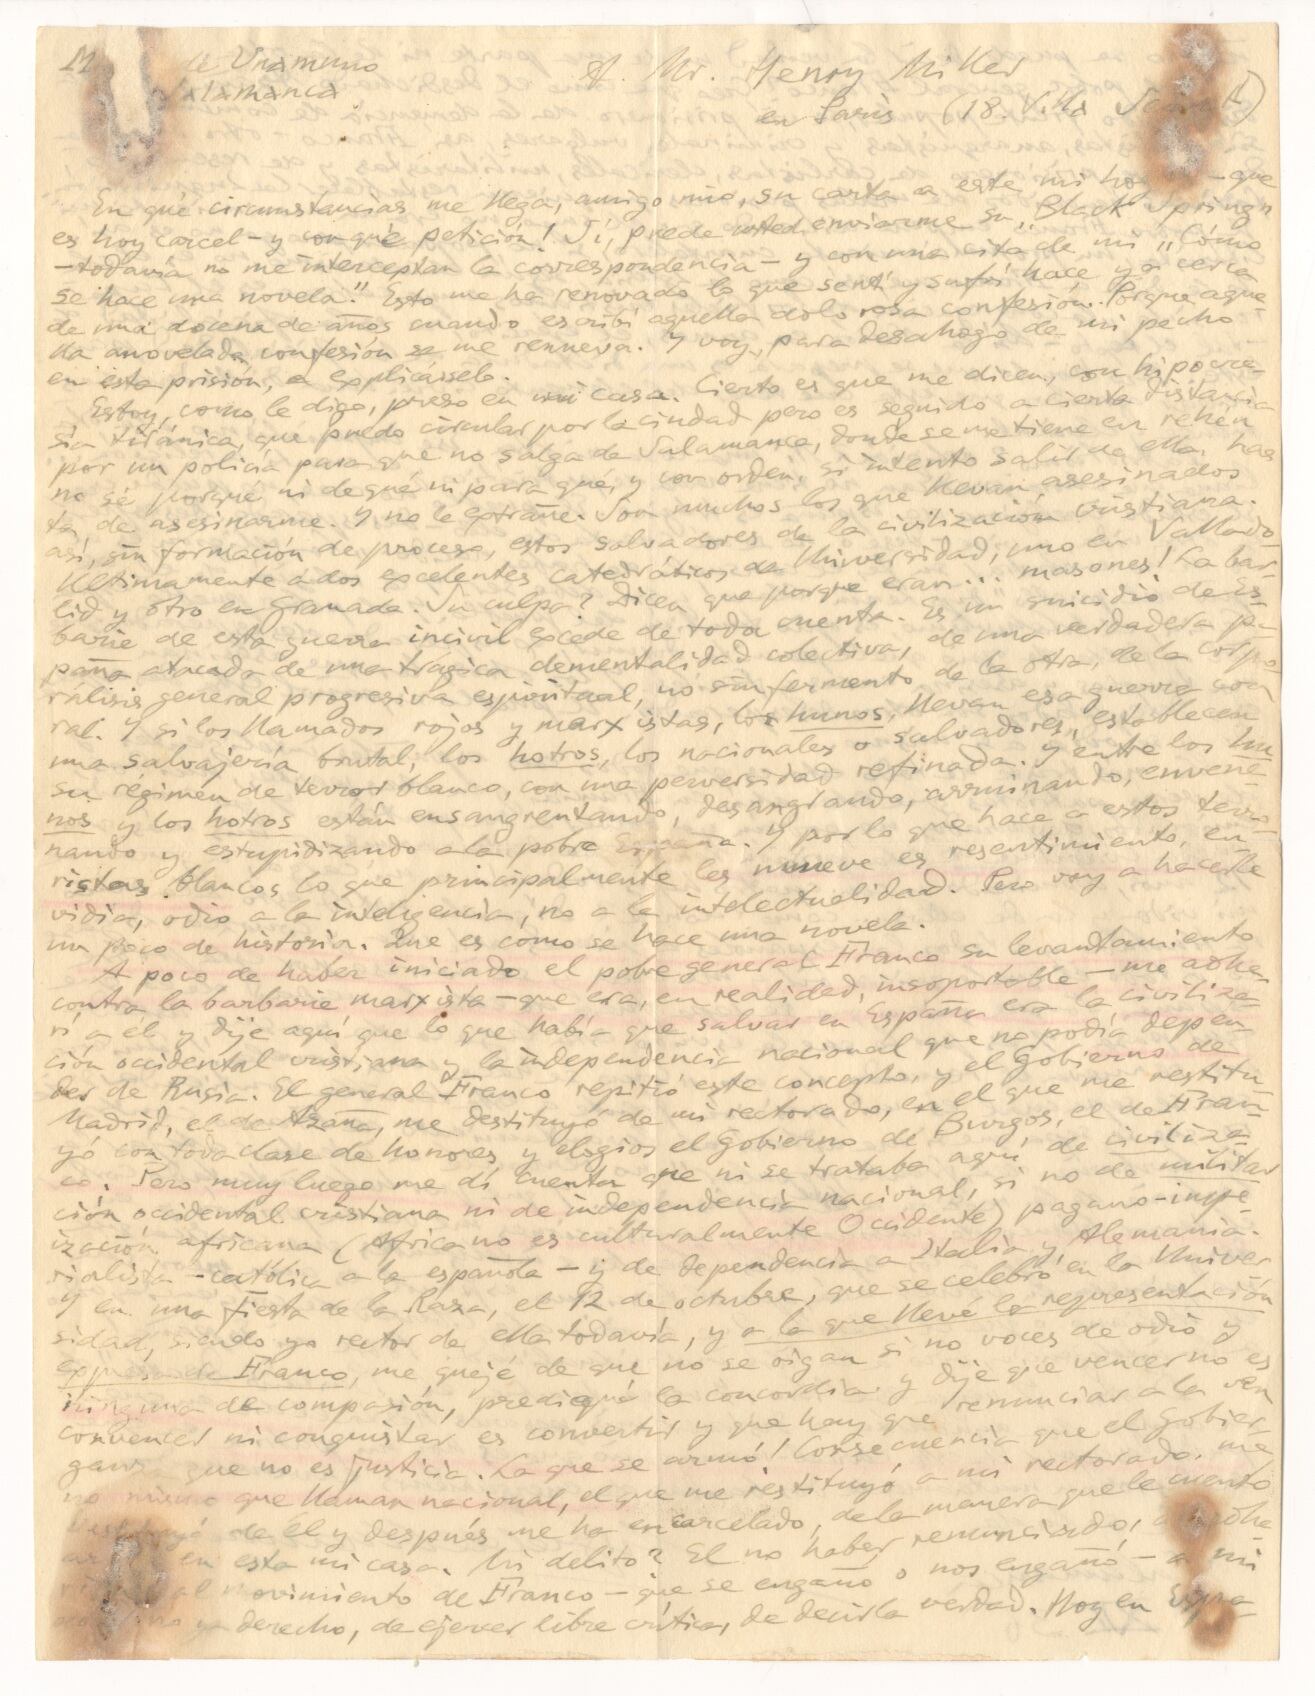 M de Unamuno
Salamanca
A. Mr. Henry Miller
en París (18. Villa
En qué circunstancias me llega, amigo mío, su carta a este mi hogar —que
es hoy carcel— y con qué petición! Sí, puede usted enviarme su „Black Spring"
—todavía no me interceptan la correspondencia— y con una cita de mi „Cómo
se hace una novela". Esto me ha renovado lo que sentí y sufrí hace ya cerca
de una docena de años cuando escribí aquella dolorosa confesión. Porque aque-
lla anovelada confesión se me renueva. Y voy, para desahogo de mi pecho
en esta prisión, a explicárselo.
Estoy, como le digo, preso en mi casa. Cierto es que me dicen, con hipocre-
sía tiránica, que puedo circular por la ciudad pero es seguido a cierta distancia
por un policía para que no salga de Salamanca, donde se me tiene en rehén
no sé porqué ni de qué ni para qué, y con orden, si intento salir de ella, has
ta de asesinarme. Y no le extrañe. Son muchos los que llevan asesinados
así, sin formación de proceso, estos salvadores de la civilización cristiana.
Ultimamente a dos excelentes catedráticos de Universidad, uno en Vallado-
lid y otro en Granada. Su culpa? Dicen que porque eran... masones! La bar-
barie de esta guerra incivil excede de toda cuenta. Es un suicidio de Es-
paña atacada de una trágica dementalidad colectiva, de una verdadera pa-
rálisis general progresiva espiritual, no sin fermento de la otra, de la corpo-
ral. Y si los llamados rojos y marxistas, los hunos, llevan esa guerra con
una salvajería brutal, los hotros, los nacionales o salvadores, establecen
su régimen de terror blanco, con una perversidad refinada. Y entre los hu
nos y los hotros están ensangrentando, desangrando, arruinando, envene-
nando y estupidizando a la pobre España. Y por lo que hace a estos terro-
ristas blancos lo que principalmente les mueve es resentimiento, en-
vidia, odio a la inteligencia, no a la intelectualidad. Pero voy a hacerle
un poco de historia. Que es cómo se hace una novela.
A poco de haber iniciado el pobre general Franco su levantamiento
contra la barbarie marxista —que era, en realidad, insoportable— me adhe-
rí a el y dije aquí que lo que había que salvar en España era la civiliza-
ción occidental cristiana y la independencia nacional que no podía depen-
der de Rusia. El general Franco repitió este concepto, y el Gobierno de
Madrid, el de Azaña, me destituyó de mi rectorado, en el que me restitu
yó con toda clase de honores y elogios el Gobierno de Burgos, el de Fran-
co. Pero muy luego me dí cuenta que ni se trataba aquí de civiliza-
ción occidental cristiana ni de independencia nacional, si no de militar
ización africana (Africa no es culturalmente Occidente) pagano-impe-
rialista-católica a la española— y de dependencia a Italia y Alemania.
Y en una Fiesta de la Raza, el 12 de octubre, que se celebró en la Univer
sidad, siendo yo rector de ella todavía, y a la que llevé la representación
expresa de Franco, me quejé de que no se oigan si no voces de odio y
ninguna de compasión, prediqué la concordia y dije que vencer no es
convencer ni conquistar es convertir y que hay que renunciar a la ven
ganza que no es justicia. La que se armó! Consecuencia que el Gobier-
no mismo que llaman nacional, el que me restituyó a mi rectorado, me
destituyó de él y después me ha encarcelado, de la manera que le cuento
en esta mi casa. Mi delito? El no haber renunciado, al adhe-
al movimiento de Franco —que se engañó o nos engañó— a mi
ya derecho, de ejercer libre crítica, de decir la verdad. Hoy en Espa-